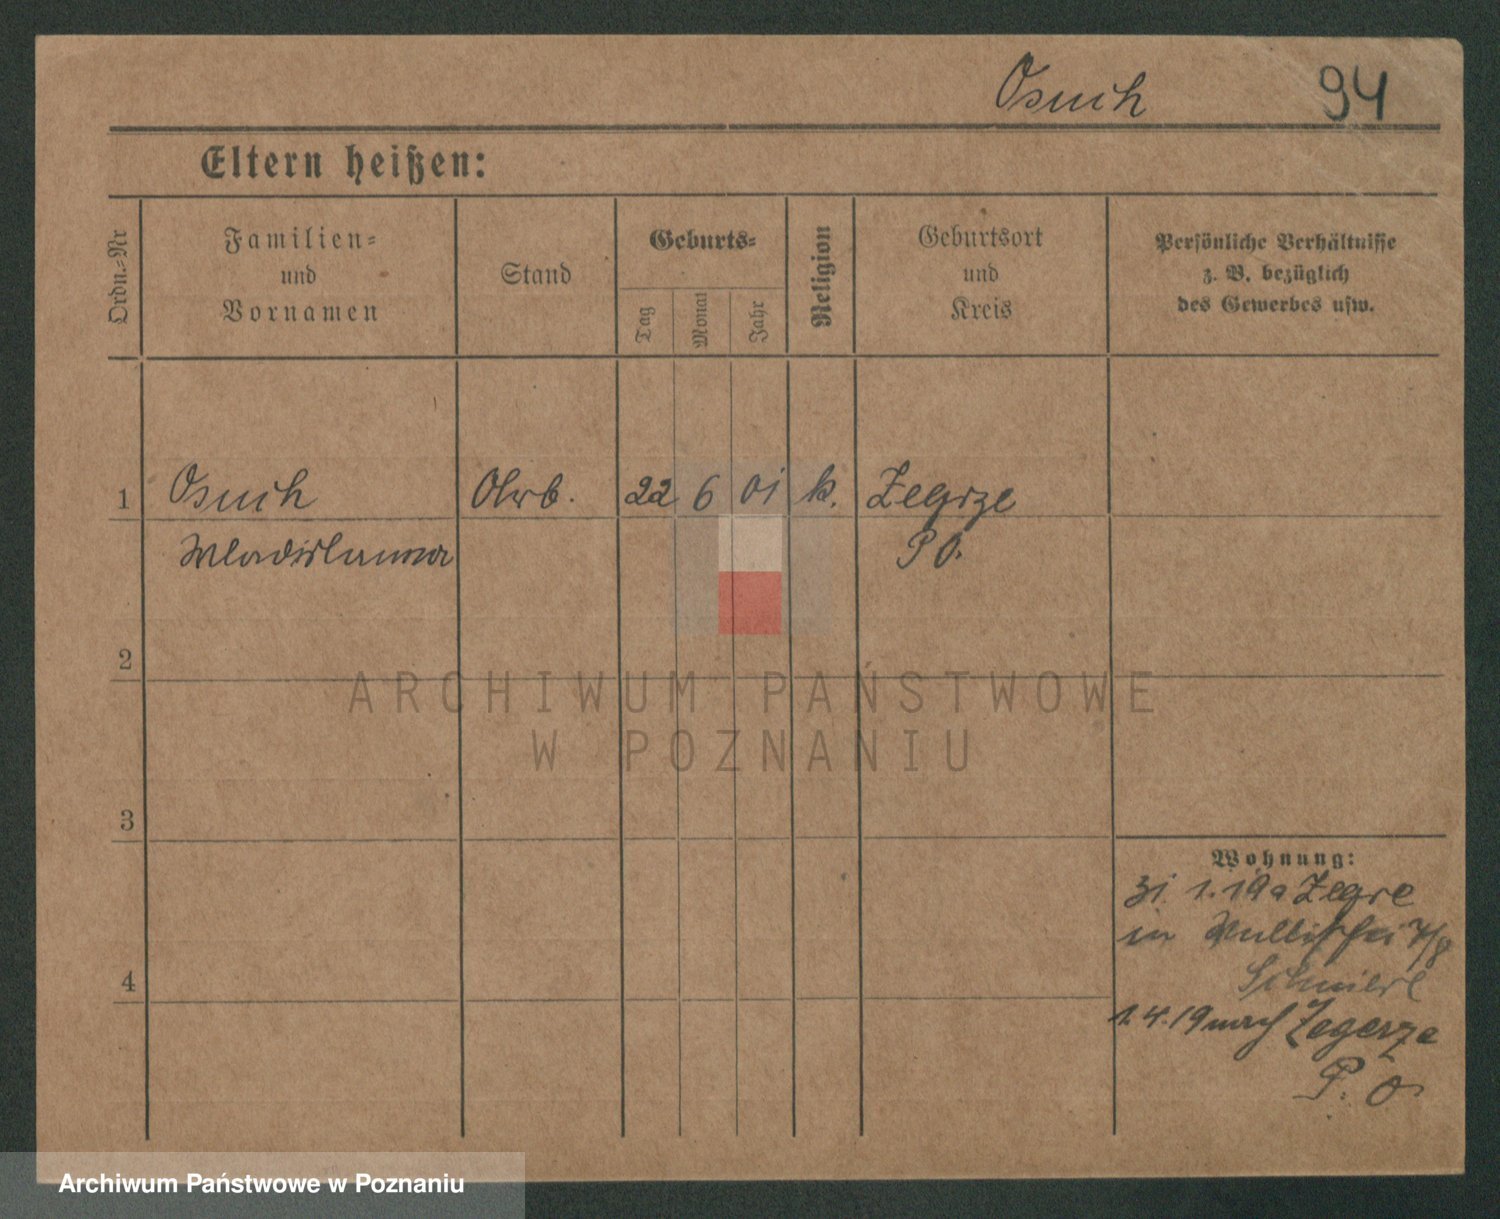 Osuch 94
Eltern heißen:
Ordn.-Nr
Familien-
und
Vornamen
Stand
Geburts-
Tag
Monat
Jahr
Religion
Geburtsort
und
Kreis
Persönliche Verhältnisse
z. B. bezüglich
des Gewerbes usw.
1 Osuch 22 6 01 k. Zegrze
Wladislawa P O.
2
3
4
Wohnung:
31. 1. 19 a Zegre
in 7/8
1.4.19 nach Zegerze
P. O
ARCHIWUM PAŃSTWOWE
W POZNANIU
Archiwum Państwowe w Poznaniu